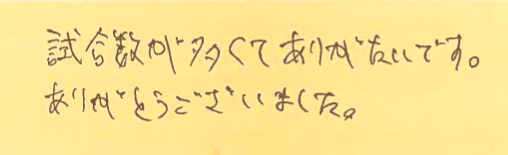 試合数が多くてありがたいです。
ありがとうございました。